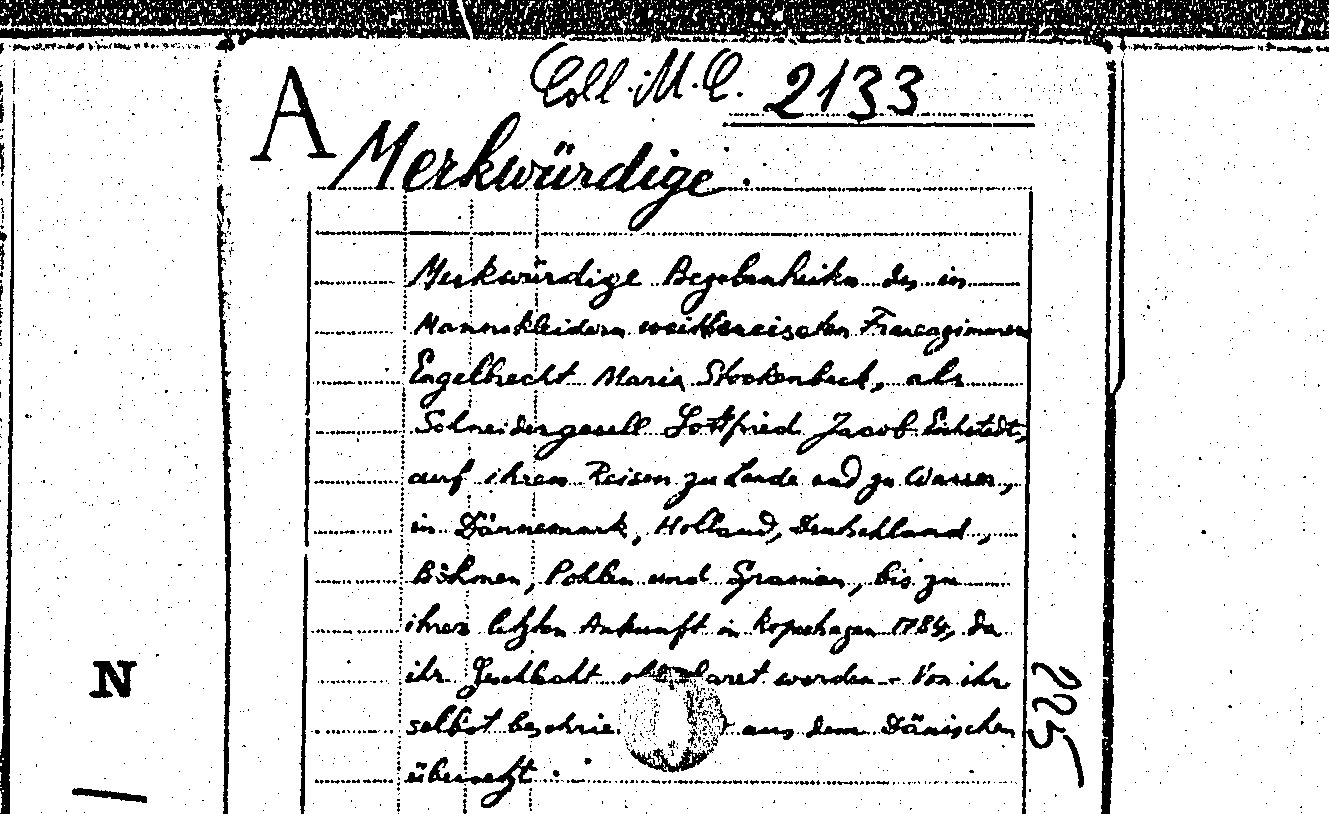 Coll. M. C. 2133
A
Merkwürdige.
Merkwürdige Begebenheiten des in
Mannskleidern weitbereiseten Frauenzimmers
Engelbrecht Maria Stockenbeck, als
Schneidergesell Gottfried Jacob Eichstedt,
auf ihren Reisen zu Lande und zu Wasser,
in Dännemark, Holland, Deutschland,
Böhmen, Pohlen und Spanien, bis zu
ihrer letzten Ankunft in Kopenhagen 1784, da
ihr Geschlecht worden - Von ihr
selbst aus dem Dänischen
übersetzt.
225
N